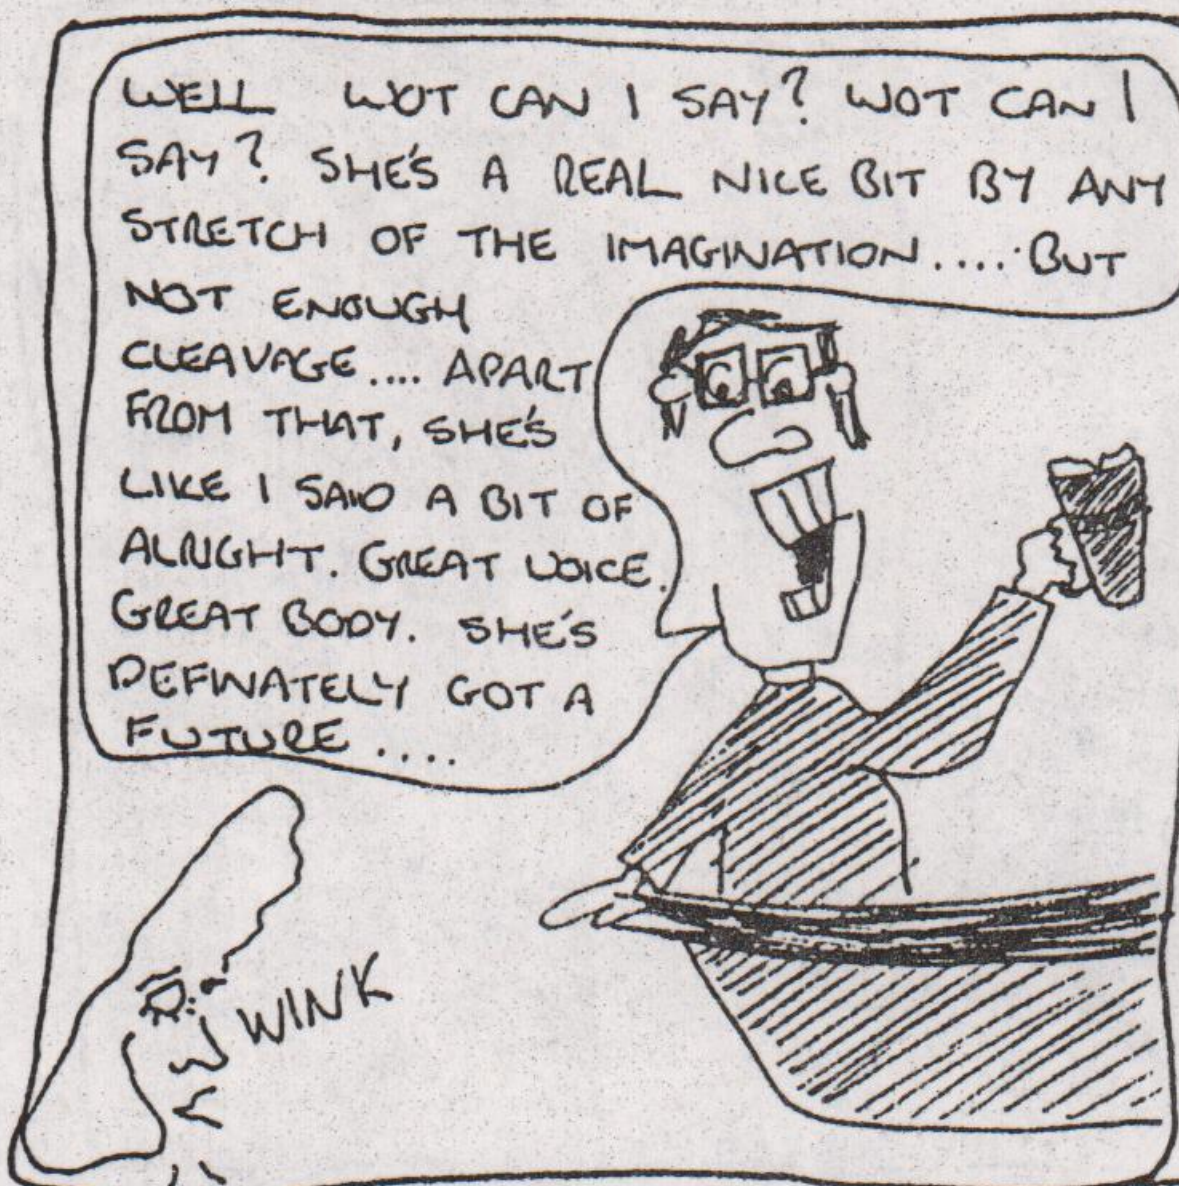 WELL WOT CAN I SAY? WOT CAN I
SAY? SHE'S A REAL NICE BIT BY ANY
STRETCH OF THE IMAGINATION..... BUT
NOT ENOUGH
CLEAVAGE.... APART
FROM THAT, SHE'S
LIKE I SAID A BIT OF
ALRIGHT. GREAT VOICE.
GREAT BODY. SHE'S
DEFINATELY GOT A
FUTURE ....
WINK